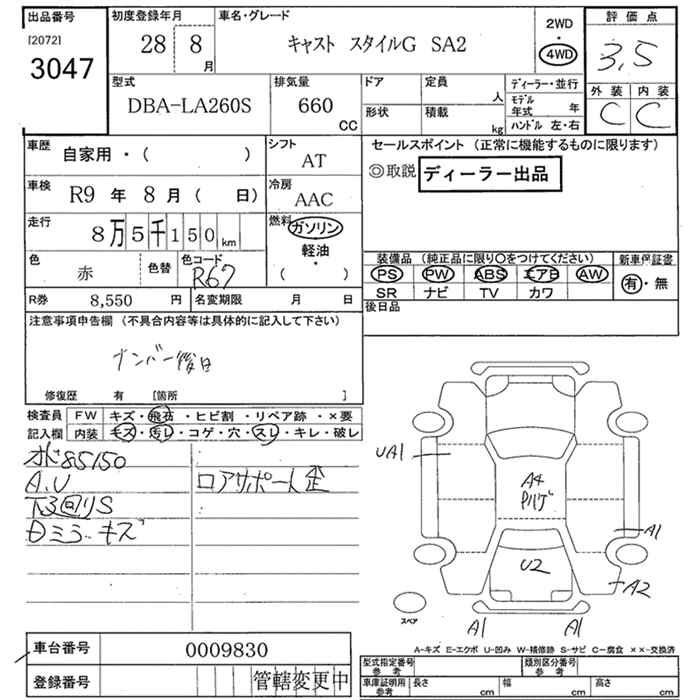 出品番号
[2072]
3047
初度登録年月
28 8
月
車名・グレード
キャスト スタイルG SA2
2WD
・
4WD
評価点
3,5
外装 内装
C C
型式
DBA-LA260S
排気量
660
CC
ドア
形状
定員
人
積載
kg
ディーラー・並行
モデル
年式 年
ハンドル 左・右
車歴
自家用・( )
シフト
AT
車検
R9 年 8 月 ( 日)
冷房
AAC
走行
8万5千150km
燃料
ガソリン
・
軽油
・
( )
色
赤
色替
色コード
R67
R券 8,550 円
名変期限 月 日
セールスポイント (正常に機能するものに限ります)
◎取説 ディーラー出品
装備品 (純正品に限り○をつけてください)
PS PW ABS エアB AW
SR ナビ TV カワ
新車保証書
有・無
後日品
注意事項申告欄 (不具合内容等は具体的に記入して下さい)
ナンバー後日
修復歴 有 [箇所 ]
検査員
記入欄
FW キズ・飛石・ヒビ割・リペア跡・×要
内装 キズ・汚レ・コゲ・穴・スレ・キレ・破レ
オド85150
A.U
ロアサポート歪
下3回りS
Dミラーキズ
UA1
A4
U2
A1
A2
A1
A1
スペア
A-キズ E-エクボ U-凹み W-補修跡 S-サビ C-腐食 ××-交換済
車台番号
0009830
登録番号
管轄変更中
型式指定番号
参考
類別区分番号
参考
車庫証明用
参考
長さ cm
幅 cm
高さ cm